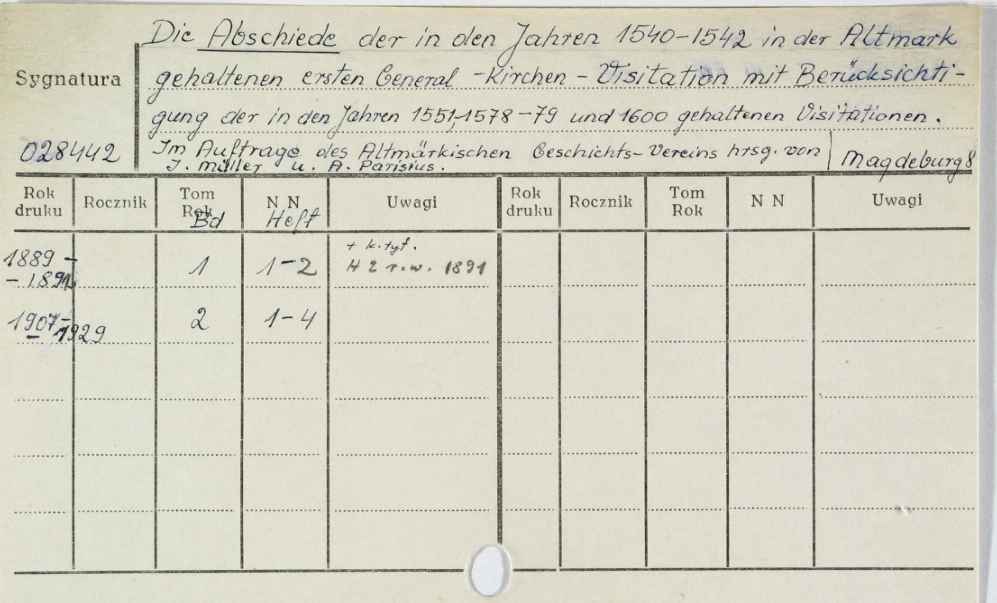 Die Abschiede der in den Jahren 1540-1542 in der Altmark
Sygnatura
gehaltenen ersten General-Kirchen-Visitation mit Berücksichti-
gung der in den Jahren 1551, 1578-79 und 1600 gehaltenen Visitationen.
028442 Im Auftrage des Altmärkischen Geschichts-Vereins hrsg. von Magdeburg 8
J. Müller u. A. Parisius.
Rok druku Rocznik Tom Rok Bd N N Heft Uwagi Rok druku Rocznik Tom Rok N N Uwagi
1889- 1 1-2 + k. tyt.
-1891 H 2 r.w. 1891
1907- 2 1-4
- 1929